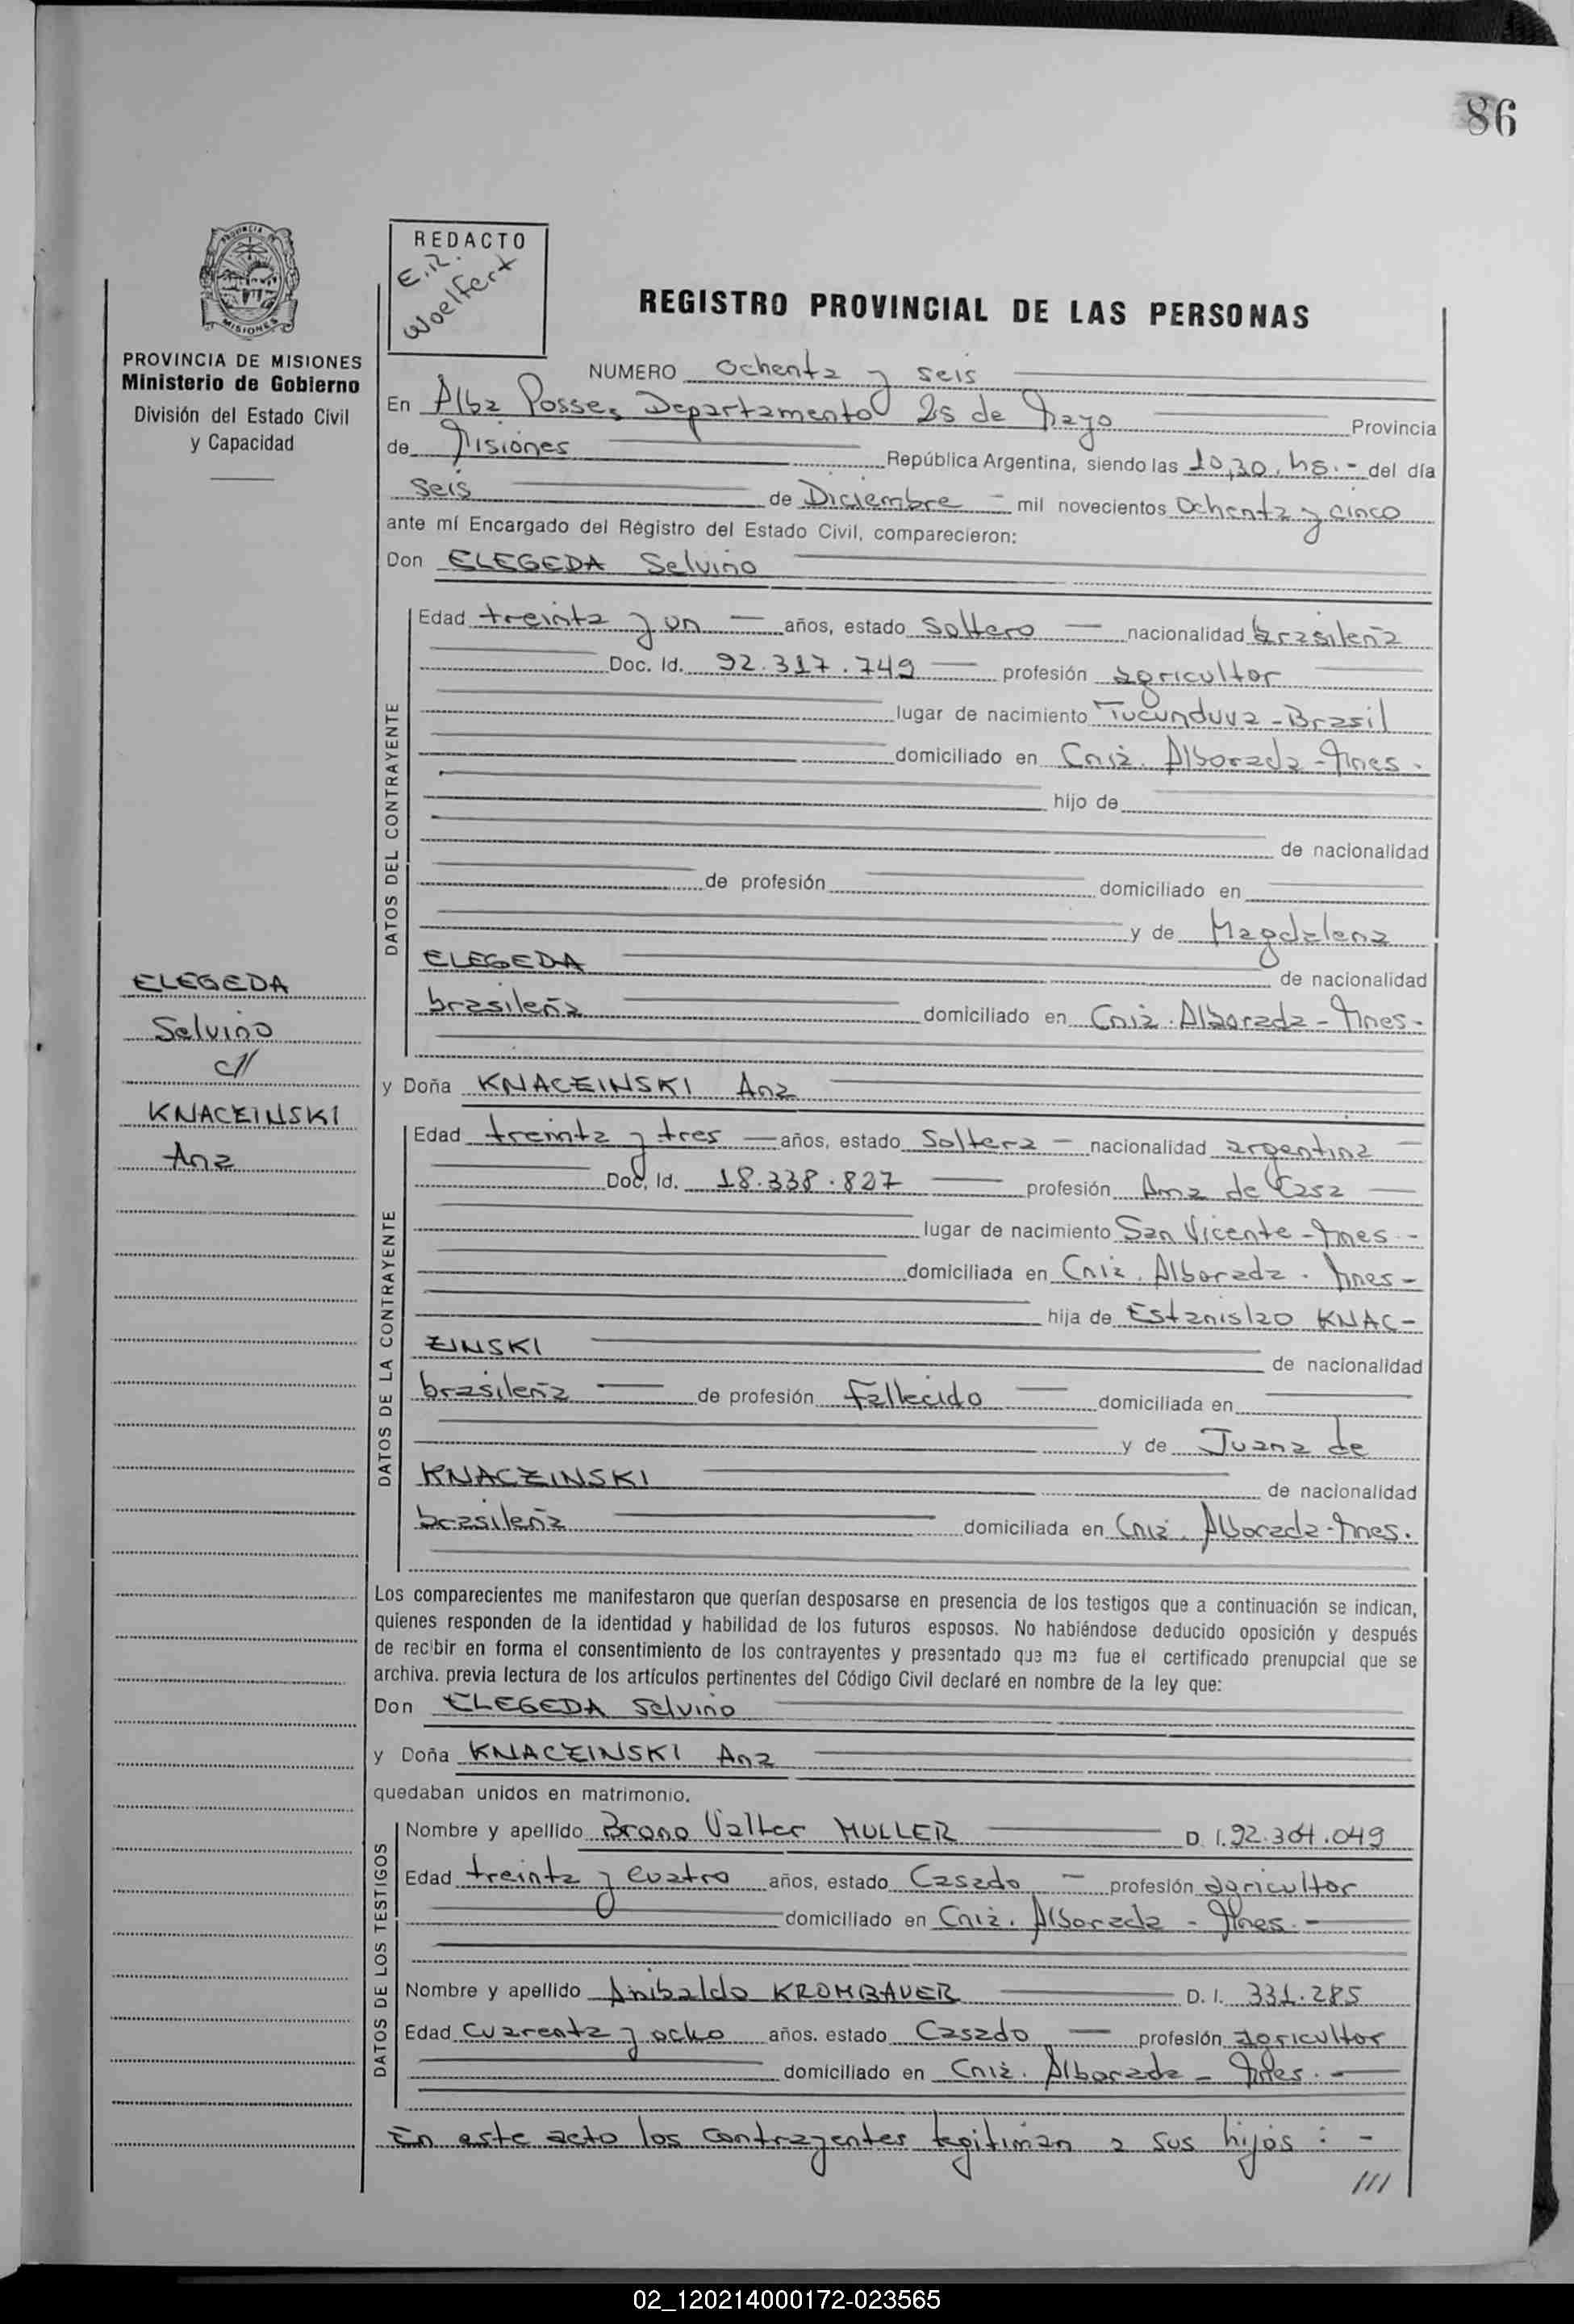 86
REDACTO
E.R.
Woelfert
PROVINCIA DE MISIONES
PROVINCIA DE MISIONES
Ministerio de Gobierno
División del Estado Civil
y Capacidad
REGISTRO PROVINCIAL DE LAS PERSONAS
NUMERO ochenta y seis
En Alba Posse, Departamento 25 de Mayo Provincia
de Misiones República Argentina, siendo las 10,30.hs.- del día
seis de Diciembre - mil novecientos ochenta y cinco
ante mí Encargado del Registro del Estado Civil, comparecieron:
Don ELEGEDA Selvino
DATOS DEL CONTRAYENTE
Edad treinta y un años, estado Soltero nacionalidad brasileña
Doc. Id. 92.317.749 profesión agricultor
lugar de nacimiento Tucunduva - Brasil
domiciliado en Cniz. Alborada - Mnes.
hijo de
de nacionalidad
de profesión domiciliado en
y de Magdalena
ELEGEDA de nacionalidad
brasileña domiciliado en Cniz. Alborada - Mnes-
ELEGEDA
Selvino
c//
KNACZINSKI
Ana
y Doña KNACZINSKI Ana
DATOS DE LA CONTRAYENTE
Edad treinta y tres años, estado Soltera - nacionalidad argentina
Doc. Id. 18.338.827 profesión Ama de Casa
lugar de nacimiento San Vicente - Mnes -
domiciliada en Cniz. Alborada. Mnes-
hija de Estanislao KNAC-
ZINSKI de nacionalidad
brasileña de profesión fallecido domiciliada en
y de Juana de
KNACZINSKI de nacionalidad
brasileña domiciliada en Cniz. Alborada-Mnes.
Los comparecientes me manifestaron que querían desposarse en presencia de los testigos que a continuación se indican,
quienes responden de la identidad y habilidad de los futuros esposos. No habiéndose deducido oposición y después
de recibir en forma el consentimiento de los contrayentes y presentado que me fue el certificado prenupcial que se
archiva. previa lectura de los artículos pertinentes del Código Civil declaré en nombre de la ley que:
Don ELEGEDA Selvino
y Doña KNACZINSKI Ana
quedaban unidos en matrimonio.
DATOS DE LOS TESTIGOS
Nombre y apellido Bruno Valter MULLER D. I. 92.304.049
Edad treinta y cuatro años, estado Casado - profesión agricultor
domiciliado en Cniz. Alborada - Mnes. -
Nombre y apellido Anibaldo KROMBAUER D. I. 331.285
Edad Cuarenta y ocho años. estado Casado profesión agricultor
domiciliado en Cniz. Alborada - Mnes. -
En este acto los contrayentes legitiman a sus hijos : -
///
02_120214000172-023565